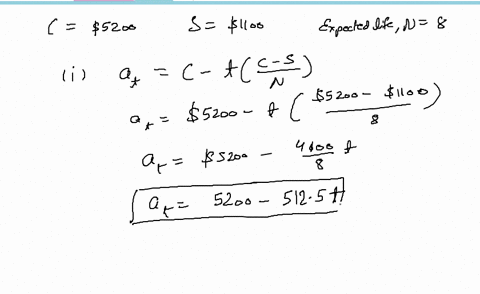 C = $5200 S = $1100 Expected life, N = 8
(i) a_t = C - t(C-S/N)
a_t = $5200 - t($5200 - $1100/8)
a_t = $5200 - 4100/8 t
a_t = 5200 - 512.5 t